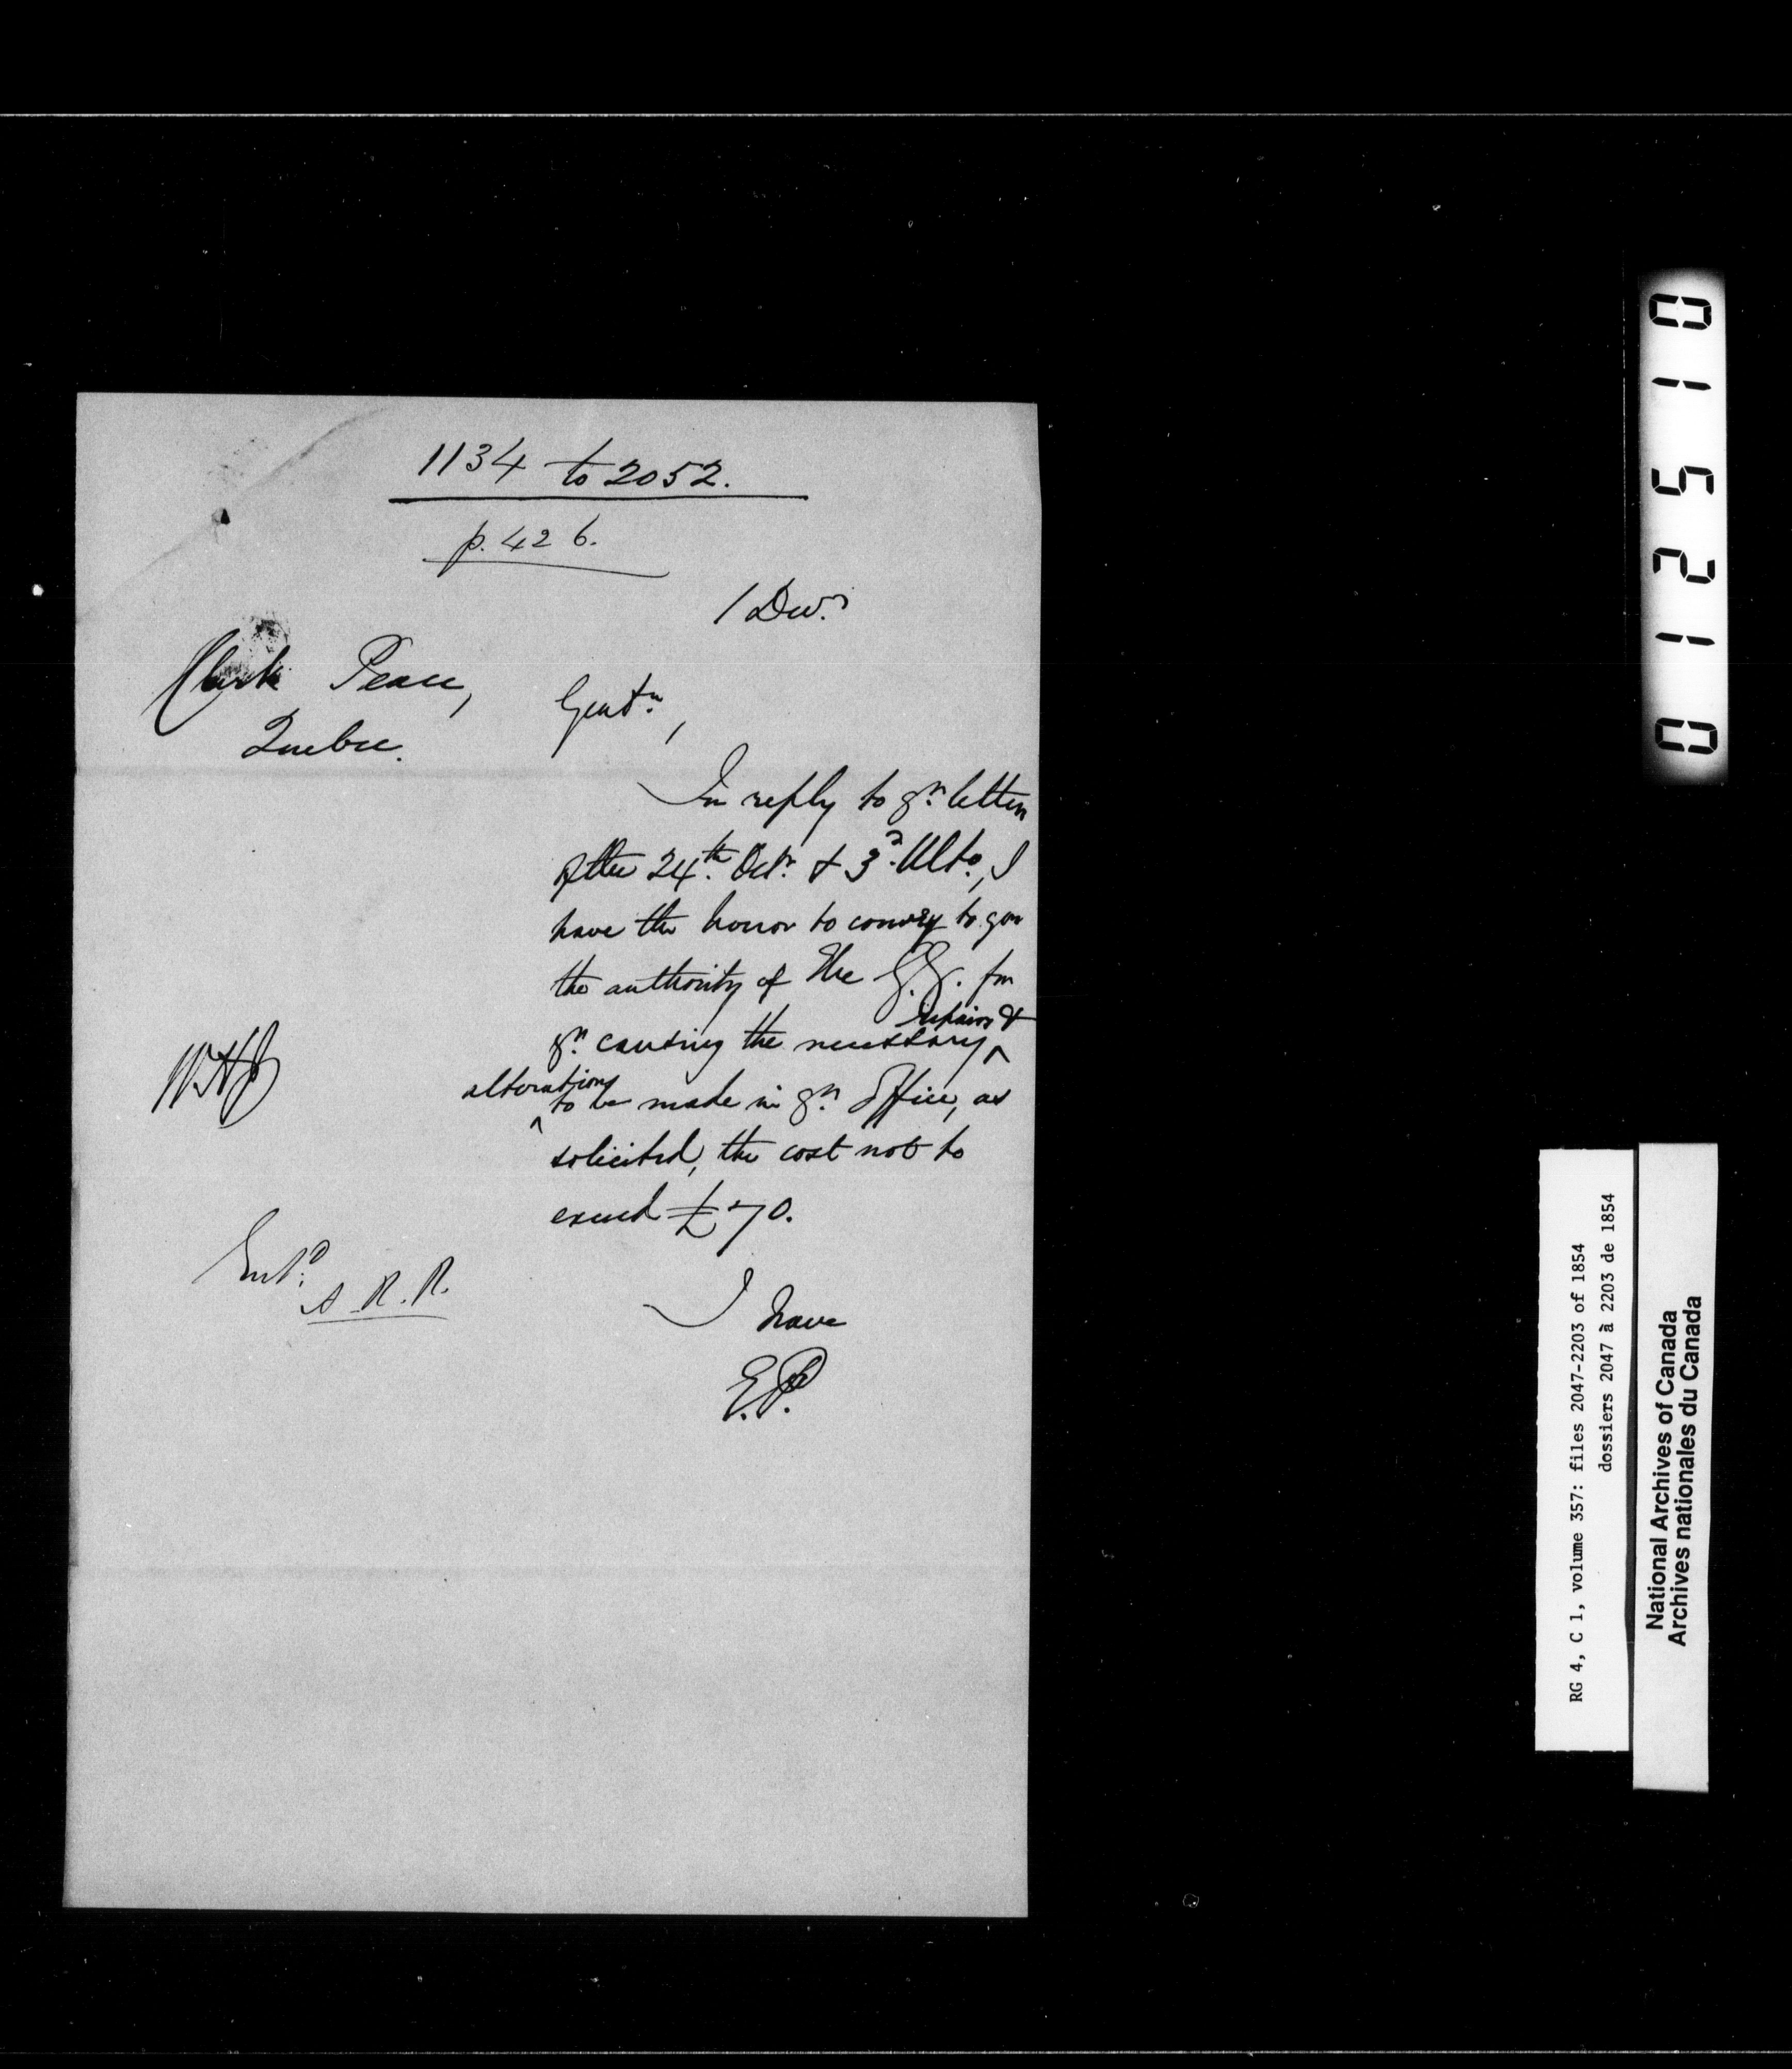 1134 to 2052.
p. 426.
1 Decr.
Clerk Peace,
Quebec.
Gentn.,
In reply to yr. letters
of the 24th. Octr. & 3d. Ulto., I
have the honor to convey to you
the authority of the G.G. for
yr. causing the necessary ^ repairs &
alterations ^ to be made in yr. Office, as
solicited, the cost not to
exceed £70.
WHJ
Entd.
A R.R.
I have
E.P.
01210
RG 4, C 1, volume 357: files 2047-2203 of 1854
dossiers 2047 à 2203 de 1854
National Archives of Canada
Archives nationales du Canada